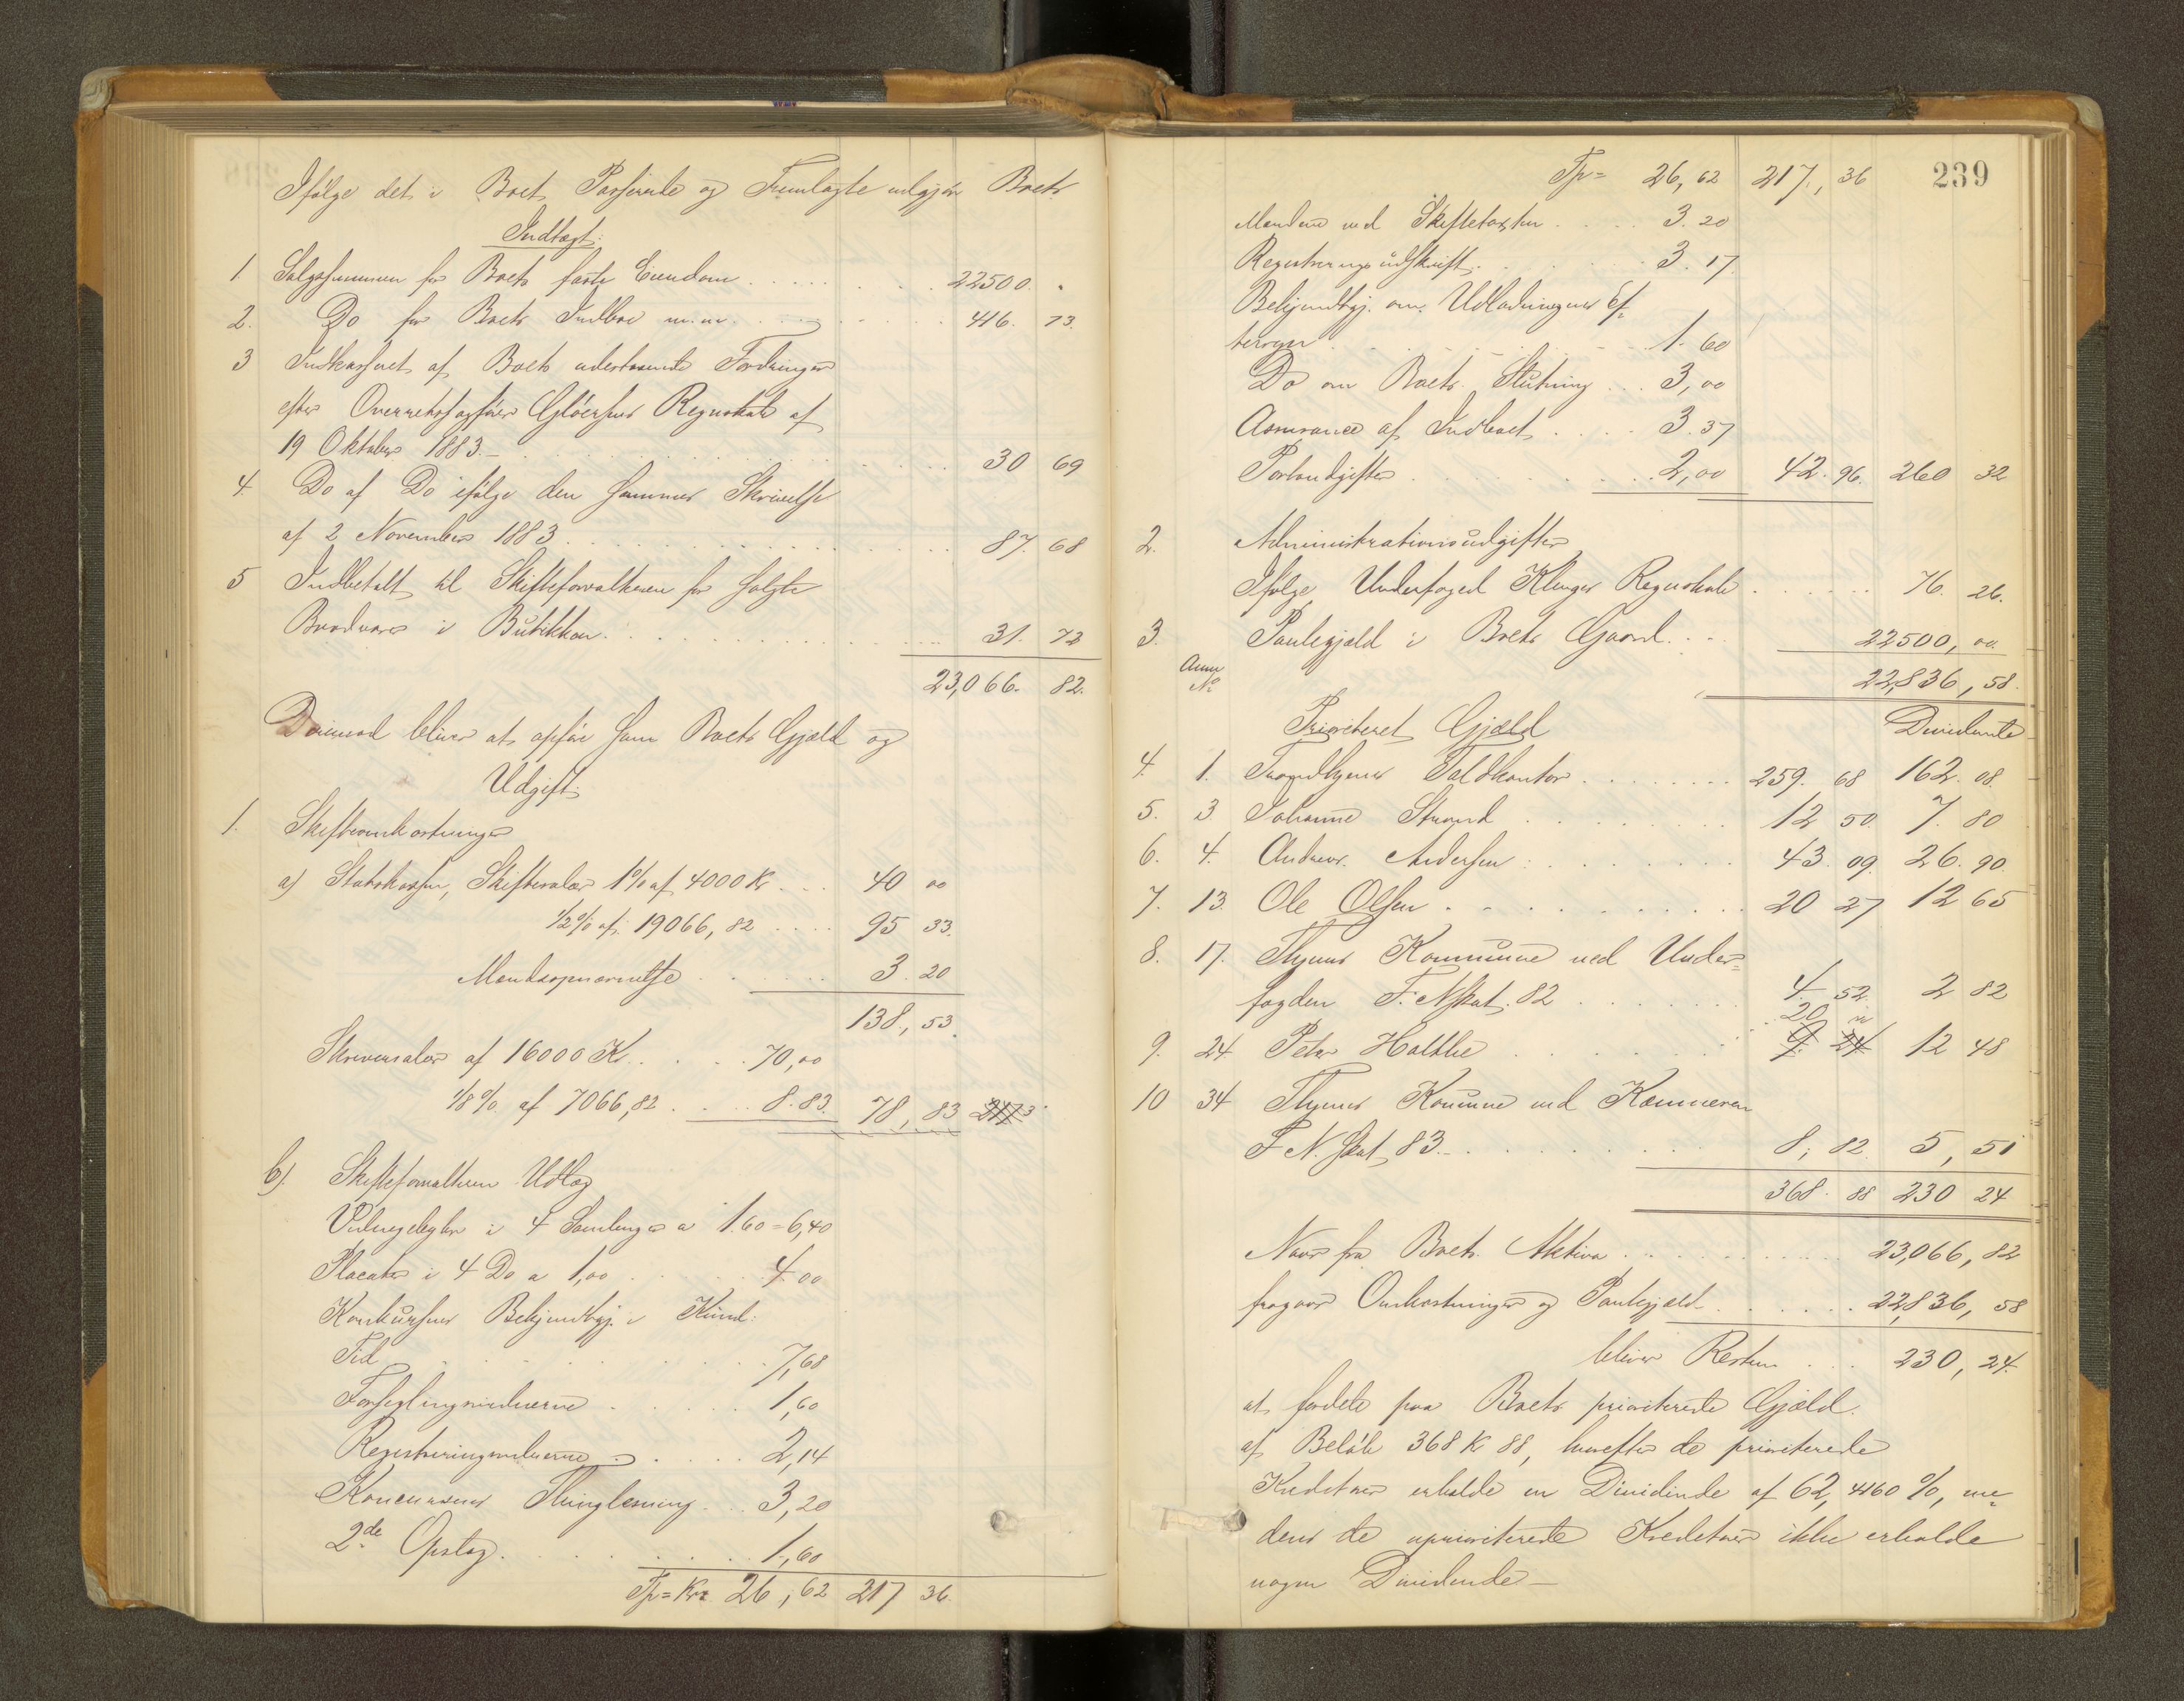 Ifølge det i Boet Passerede og Fremlagte udgjør Boets
Indtægt:
1 Salgssummen for Boets faste Eiendom . . . . . . . 22500. "
2. Do for Boets Indbo m.m. . . . . . . 416. 73.
3 Indkasseret af Boets udestaaende Fordringer
efter Overretssagfører Gløersens Regnskab af
19 Oktober 1883 – . . . . . . . 30 69
4. Do af Do ifølge den sammes Skrivelse
af 2 November 1883 . . . . . . . 87. 68
5 Indbetalt til Skifteforvalteren for solgte
Brødvarer i Butikken. . . . . . . 31. 72
23,066. 82.
Derimod bliver at opføre som Boets Gjæld og
Udgift:
1. Skifteomkostninger
a) Statskassen, Skiftesalær 1% af 4000 Kr . . . 40 00
1/2% af 19066,82 . . . . 95 33.
Mandsopnævnelse . . . . . 3. 20
138, 53.
Skriversalær af 16000 K. . . . . 70,00
1/8% af 7066,82 . . . . 8.83. 78, 83
b). Skifteforvalterens Udlæg
i 4 Samlinger a 1.60 = 6,40
Placater i 4 Do a 1,00 . . . . . 4.00
Konkursens Bekjendtgj. i Kund:
Tid . . . . . . . 7,68
Forseglingsmændene . . . . . 1,60
Registreringsmændene . . . . . 2,14
Koncursens Thinglæsning . . 3,20
2de Opslag. . . . . . . 1,60
Tp= Kr. 26,62 217 36.
239
Tp= 26,62 217, 36
Mændene ved Skiftetaxten . . . . 3.20
Registreringsudskrift . . . . . . 3.17.
Bekjendtgj. om Udlodningens Ef=
. . . . . . . 1.60
Do om Boets Slutning . . . 3,00
Assurance af Indboet . . . . 3.37
Portoudgifter . . . . . . . 2,00 42.96. 260 32
2. Administrationsudgifter
Ifølge Underfoged Klinges Regnskab . . . . . . . 76. 26.
3. Pantegjæld i Boets Gaard. . . . 22500,00.
Anm
No
22,836,58.
Prioriteret Gjæld Dividende
4. 1. Trondhjems Toldkontor . . . . . . . 259. 68 162. 08.
5. 3. Johanne Strand . . . . . . . 12 50. 7. 80
6. 4. Andreas Andersen . . . . . . . 43. 09. 26. 90.
7. 13. Ole Olsen . . . . . . . . 20 27 12 65
8. 17. Thjems Kommune ved Under=
fogden F. N Skat. 82 . . . . . . . 4. 52. 2 82
20
9. 24 Peter Holthe . . . . . . . 9. 24 12 48
10 34 Thjems Komune ved Kæmneren
F N. Skat 83.– . . . . . . . 8, 82 5, 51
368. 88 230 24
Naar fra Boets Aktiva . . . . . . . 23,066,82
fragaar Omkostninger og Pantegjæld . . . . . . 22,836,58
bliver Resten . . . 230,24.
at fordele paa Boets prioriterede Gjæld
af Beløb 368 Kr 88, hvorefter de prioriterede
Kreditorer erholde en Dividende af 62,4160 %, me=
dens de uprioriterede Kreditorer ikke erholde
nogen Dividende –